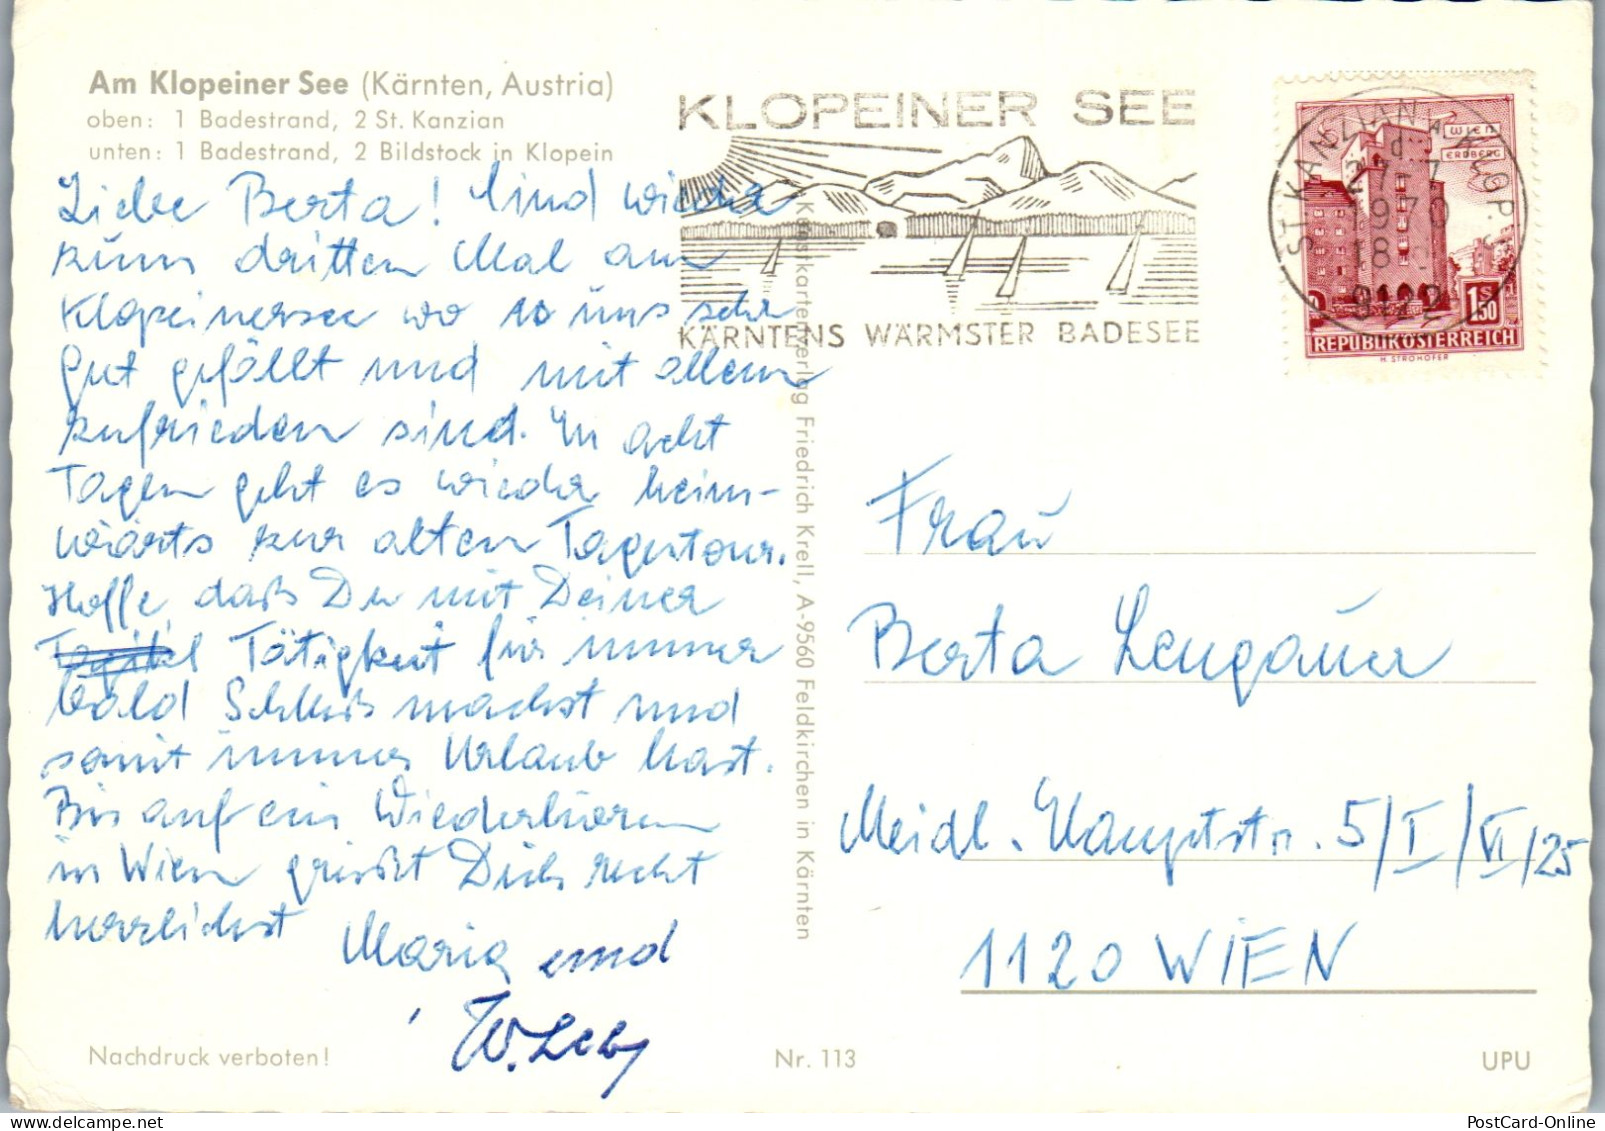 Am Klopeiner See (Kärnten, Austria)
oben: 1 Badestrand, 2 St. Kanzian
unten: 1 Badestrand, 2 Bildstock in Klopein
Liebe Berta! Sind wieder
zum dritten Mal am
Klopeinersee wo es uns sehr
gut gefällt und mit allem
zufrieden sind. In acht
Tagen geht es wieder heim-
wärts zur alten Tagestour.
Hoffe, daß Du mit Deiner
Tätigkeit für immer
bald Schluß machst und
somit immer Urlaub hast.
Bis auf ein Wiederhören
in Wien grüßt Dich recht
herzlichst
Maria und
KLOPEINER SEE
KÄRNTENS WÄRMSTER BADESEE
ST. KANZIAN A. KLOP. S.
1970
18
9122
WIEN
ERDBERG
1S50
REPUBLIK ÖSTERREICH
H. STROHOFER
Kunstkartenverlag Friedrich Krell, A-9560 Feldkirchen in Kärnten
Frau
Berta Lengauer
Meidl. Hauptstr. 5/I/VI/25
1120 WIEN
Nachdruck verboten!
Nr. 113
UPU
PostCard-Online